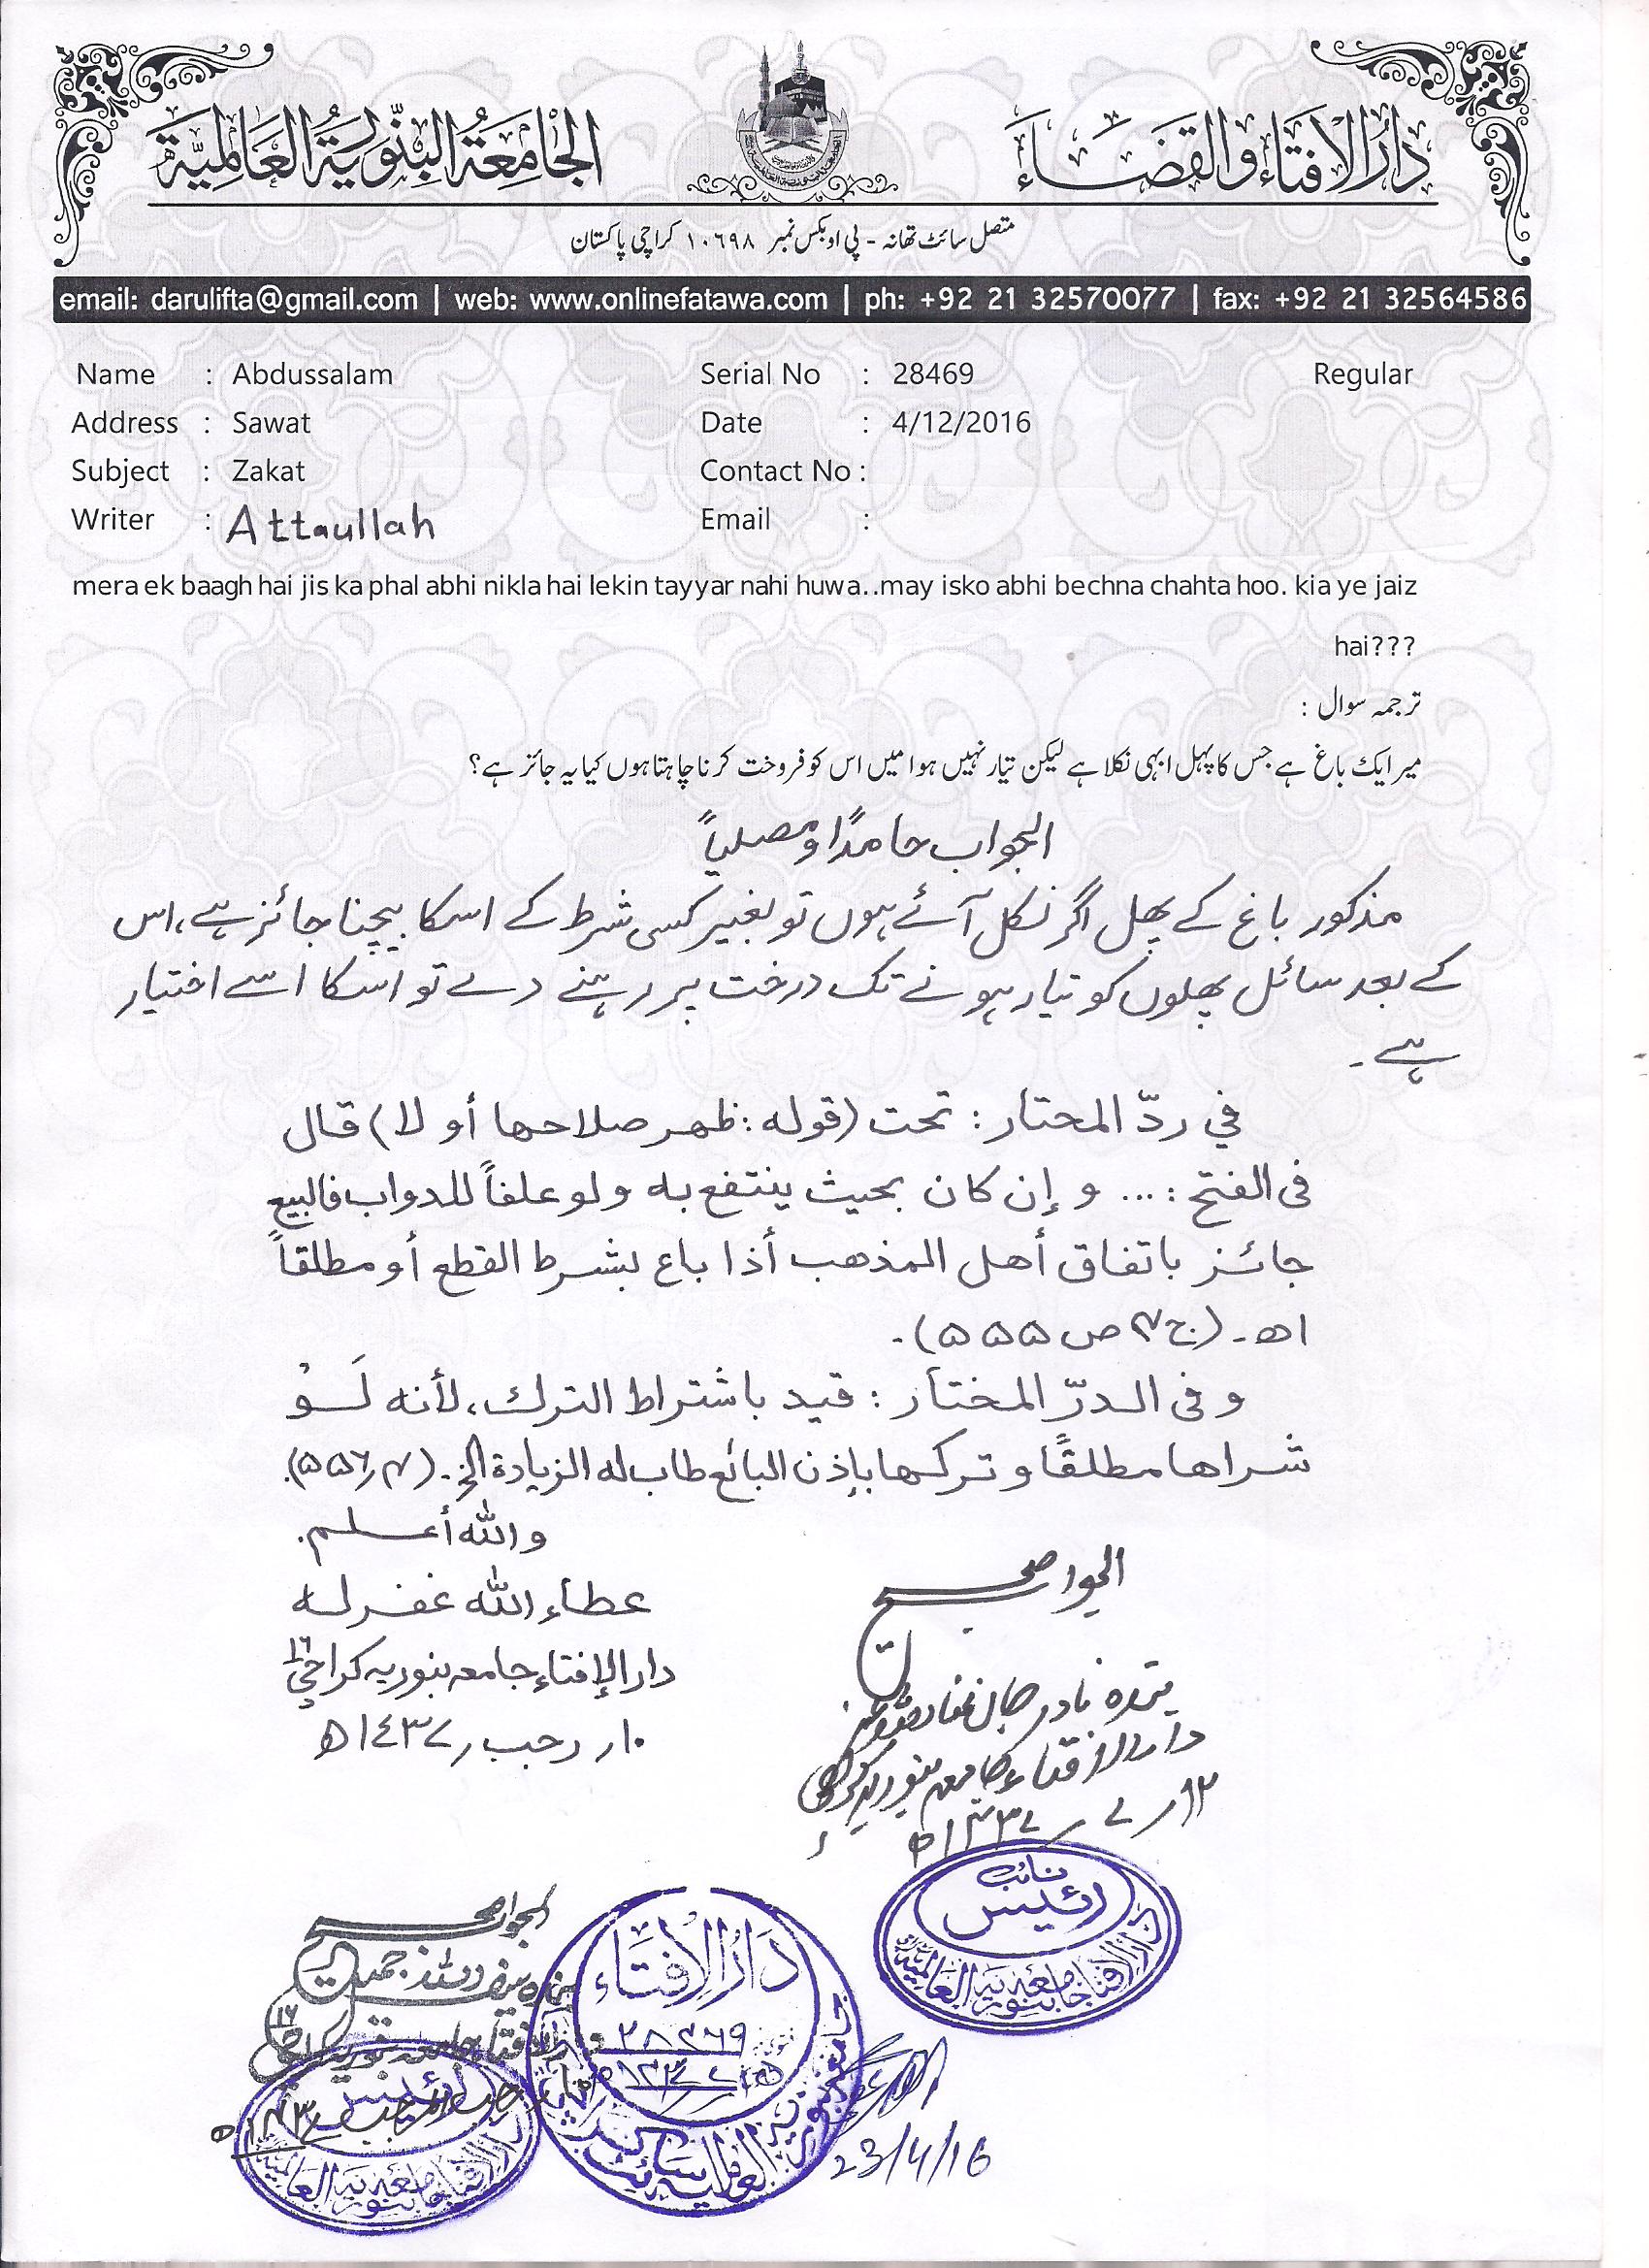 دَارُ الإفتَاء وَالقَضَاء
الجَامِعَةُ البِنّورِيَةُ العَالَمِيَّة
متصل سائٹ تھانہ - پی او بکس نمبر ١٠٦٩٨ کراچی پاکستان
email: darulifta@gmail.com | web: www.onlinefatawa.com | ph: +92 21 32570077 | fax: +92 21 32564586
Name : Abdussalam Serial No : 28469 Regular
Address : Sawat Date : 4/12/2016
Subject : Zakat Contact No :
Writer : Attaullah Email :
mera ek baagh hai jis ka phal abhi nikla hai lekin tayyar nahi huwa..may isko abhi bechna chahta hoo. kia ye jaiz
hai???
ترجمہ سوال :
میر ایک باغ ہے جس کا پہل ابہی نکلا ہے لیکن تیار نہیں ہوا میں اس کو فروخت کرنا چاہتا ہوں کیا یہ جائز ہے؟
الجواب حامدًا ومصلیاً
مذکور باغ کے پھل اگر نکل آئے ہوں تو بغیر کسی شرط کے اسکا بیچنا جائز ہے، اس
کے بعد سائل پھلوں کو تیار ہونے تک درخت پر رہنے دے تو اسکا اسے اختیار
ہے۔
في ردّ المحتار : تحت (قوله : ظهر صلاحها أو لا) قال
فى الفتح : ... و إن كان بحيث ينتفع به ولو علفاً للدواب فالبيع
جائز باتفاق أهل المذهب أذا باع بشرط القطع أو مطلقاً
اھ۔ (ج ۴ ص ۵۵۵)۔
و فى الدرّ المختار : قيد باشتراط الترك، لأنه لَوْ
شراها مطلقًا و تركها بإذن البائع طاب له الزيادة الخ۔ (۴/۵۵۶)۔
والله أعلم.
عطاء الله غفر له
دار الإفتاء جامعه بنوریه کراچی ١٦
١٠/ رجب / ١٤٣٧ھ
الجواب صحیح
بنده نادر جان
دار الافتاء جامعه بنوریه کراچی
١٢ / ٧ / ١٤٣٧ھ
نائب
رئیس
دار الافتاء جامعه بنوریه العالمیة
الجواب صحیح
دار الافتاء جامعه بنوریه کراچی ١٦
رئیس
دار الافتاء جامعه بنوریه العالمیة
دَارُ الإفتَاء
٢٨٤٦٩
23/4/16